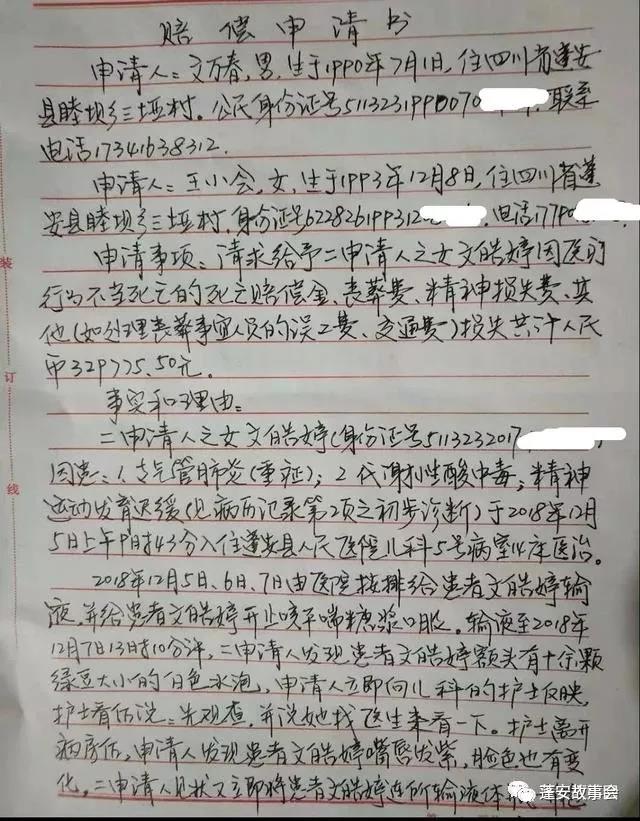 赔偿申请书
申请人：文万春，男，生于1990年7月1日，住四川省蓬安
县睦坝乡三垭村。公民身份证号5113231990070 联系
电话17341638312.
申请人：王小会，女，生于1993年12月8日，住四川省蓬
安县睦坝乡三垭村，身份证号622826199312 电话17790
申请事项：请求给予二申请人之女文皓婷因医疗
行为不当死亡的死亡赔偿金、丧葬费、精神损失费、其
他（如处理丧葬事宜人员的误工费、交通费）损失共计人民
币329775.50元。
事实和理由：
二申请人之女文皓婷（身份证号5113232017
因患：1.支气管肺炎（重症）；2代谢性酸中毒；精神
运动发育迟缓（见病历记录第2项之初步诊断）于2018年12月
5日上午9时43分入住蓬安县人民医院儿科5号病室14床医治。
2018年12月5日、6日、7日由医院按排给患者文皓婷输
液，并给患者文皓婷开止咳平喘糖浆口服。输液至2018年
12月7日13时10分许，二申请人发现患者文皓婷额头有十余颗
绿豆大小的白色水泡，申请人立即向儿科的护士反映，
护士看后说：先观查，并说她找医生来看一下。护士离开
病房后，申请人发现患者文皓婷嘴唇发紫，脸色也有变
化。二申请人见状又立即将患者文皓婷连所输液体
装
订
线
蓬安故事会